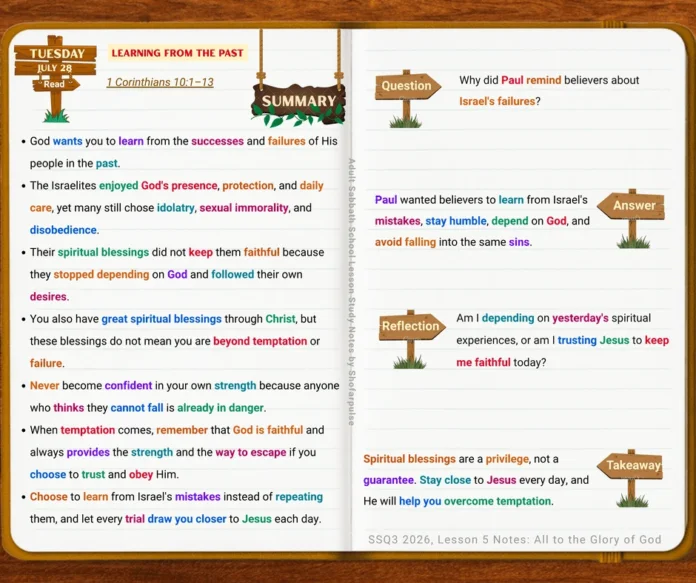 TUESDAY
JULY 28
Read
LEARNING FROM THE PAST
1 Corinthians 10:1–13
SUMMARY
• God wants you to learn from the successes and failures of His
people in the past.
• The Israelites enjoyed God's presence, protection, and daily
care, yet many still chose idolatry, sexual immorality, and
disobedience.
• Their spiritual blessings did not keep them faithful because
they stopped depending on God and followed their own
desires.
• You also have great spiritual blessings through Christ, but
these blessings do not mean you are beyond temptation or
failure.
• Never become confident in your own strength because anyone
who thinks they cannot fall is already in danger.
• When temptation comes, remember that God is faithful and
always provides the strength and the way to escape if you
choose to trust and obey Him.
• Choose to learn from Israel's mistakes instead of repeating
them, and let every trial draw you closer to Jesus each day.
Adult Sabbath School Lesson Study Notes by Shofarpulse
Question
Why did Paul remind believers about
Israel's failures?
Paul wanted believers to learn from Israel's
mistakes, stay humble, depend on God, and
avoid falling into the same sins.
Answer
Reflection
Am I depending on yesterday's spiritual
experiences, or am I trusting Jesus to keep
me faithful today?
Spiritual blessings are a privilege, not a
guarantee. Stay close to Jesus every day, and
He will help you overcome temptation.
Takeaway
SSQ3 2026, Lesson 5 Notes: All to the Glory of God